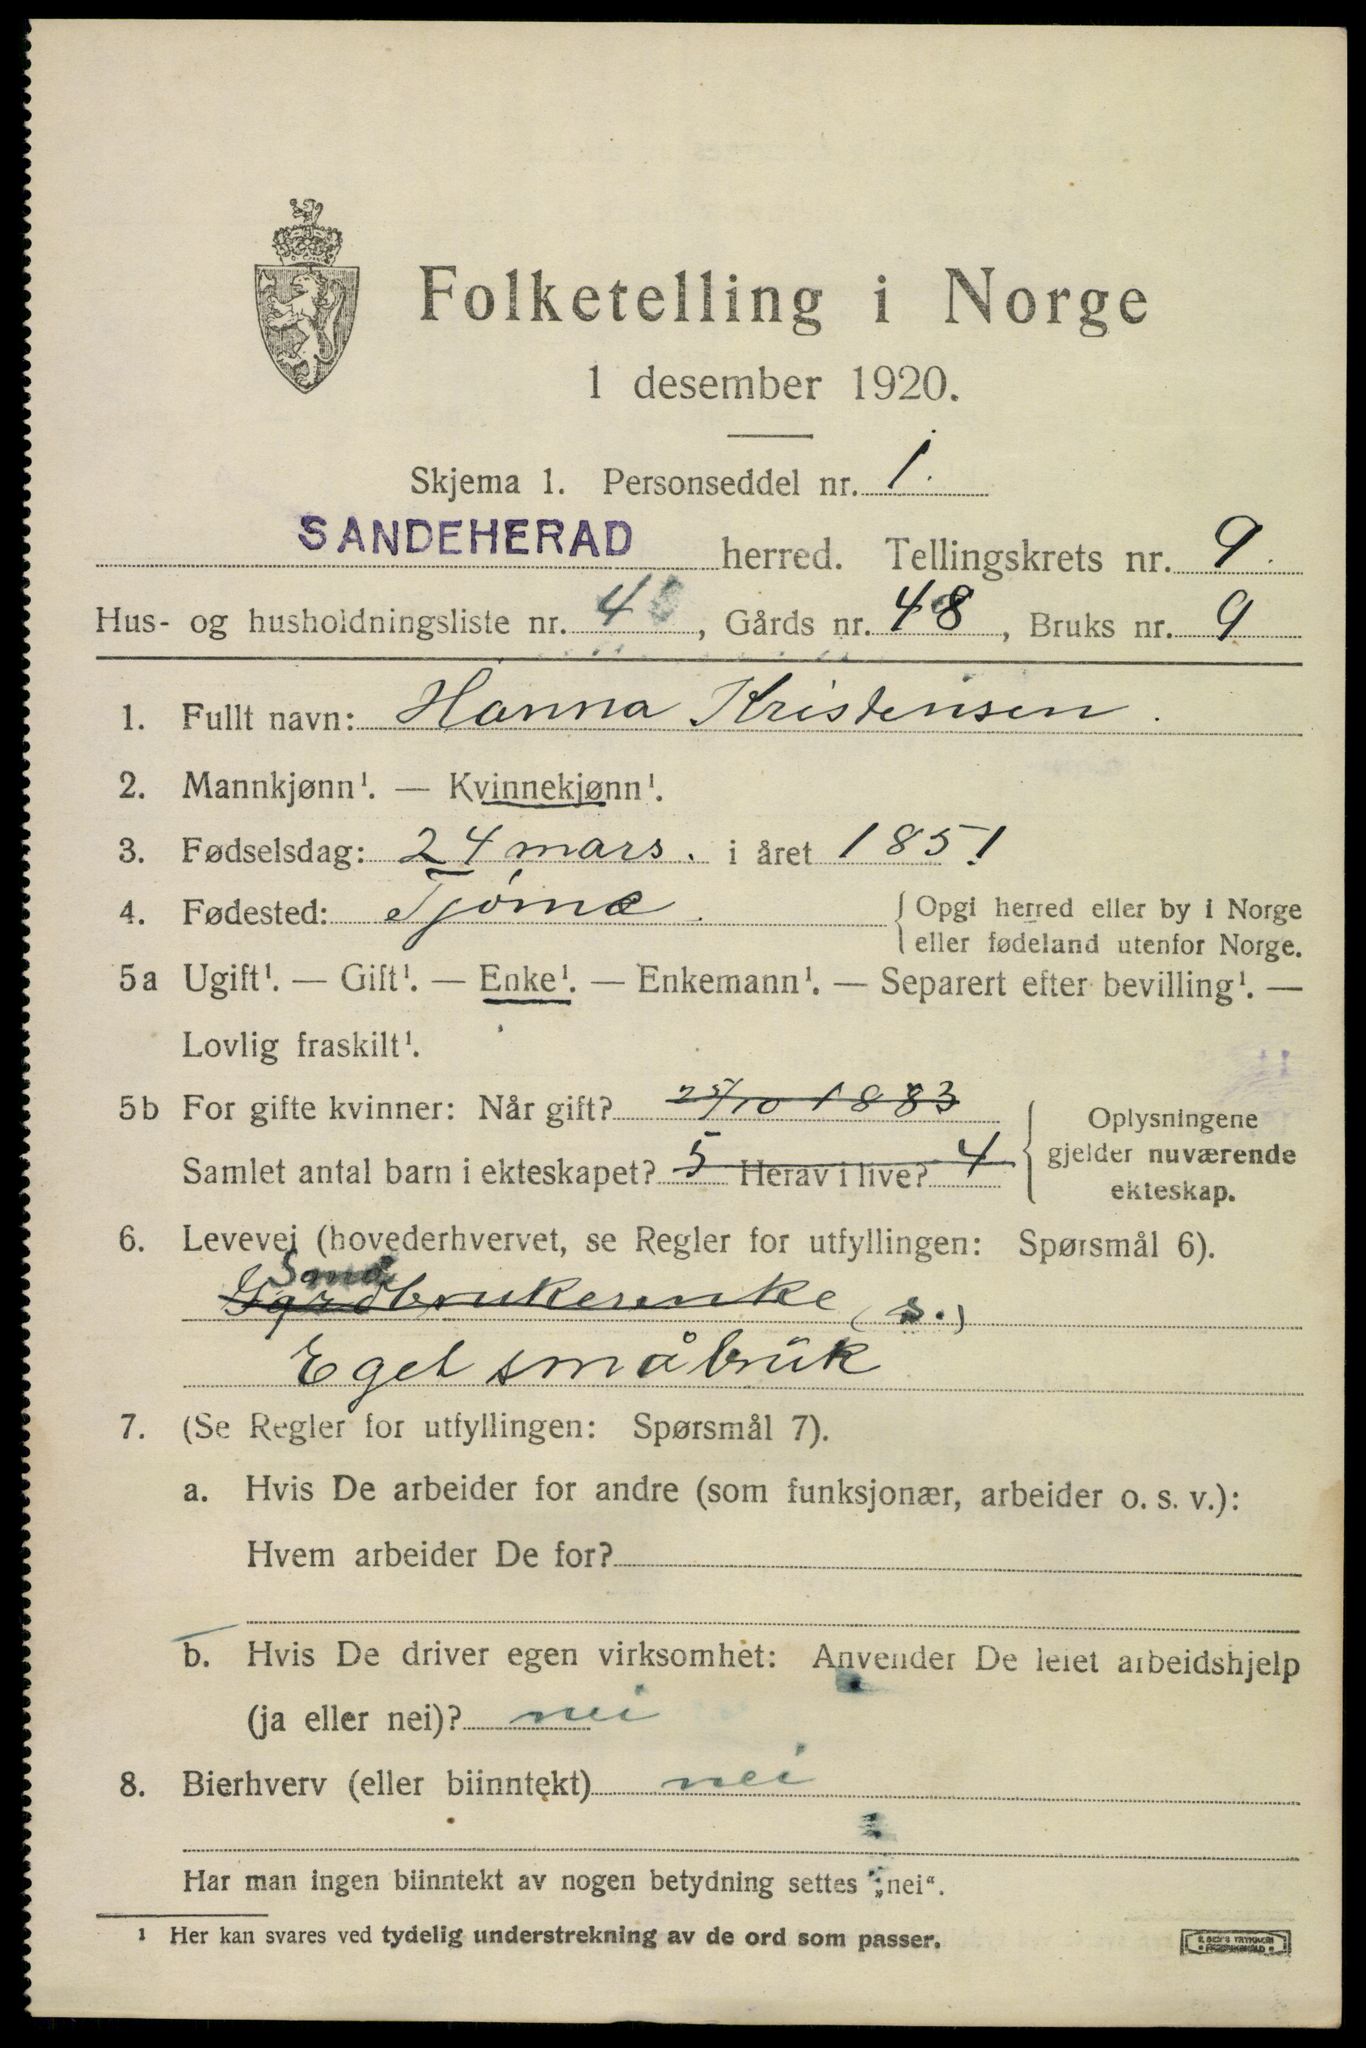 Folketelling i Norge
1 desember 1920.
Skjema 1. Personseddel nr. 1.
SANDEHERAD herred. Tellingskrets nr. 9.
Hus- og husholdningsliste nr. 4, Gårds nr. 48, Bruks nr. 9
1. Fullt navn: Hanna Kristensen.
2. Mannkjønn¹. — Kvinnekjønn¹.
3. Fødselsdag: 24 mars. i året 1851
4. Fødested: Tjømø. { Opgi herred eller by i Norge
eller fødeland utenfor Norge.
5a Ugift¹. — Gift¹. — Enke¹. — Enkemann¹. — Separert efter bevilling¹. —
Lovlig fraskilt¹.
5b For gifte kvinner: Når gift? 25/10 1883
Samlet antal barn i ekteskapet? 5 Herav i live? 4
Oplysningene
gjelder nuværende
ekteskap.
6. Levevei (hovederhvervet, se Regler for utfyllingen: Spørsmål 6).
Små
Gardbrukerenke (s.)
Eget småbruk
7. (Se Regler for utfyllingen: Spørsmål 7).
a. Hvis De arbeider for andre (som funksjonær, arbeider o. s. v.):
Hvem arbeider De for?
b. Hvis De driver egen virksomhet: Anvender De leiet arbeidshjelp
(ja eller nei)? nei
8. Bierhverv (eller biinntekt) nei
Har man ingen biinntekt av nogen betydning settes „nei“.
¹ Her kan svares ved tydelig understrekning av de ord som passer.